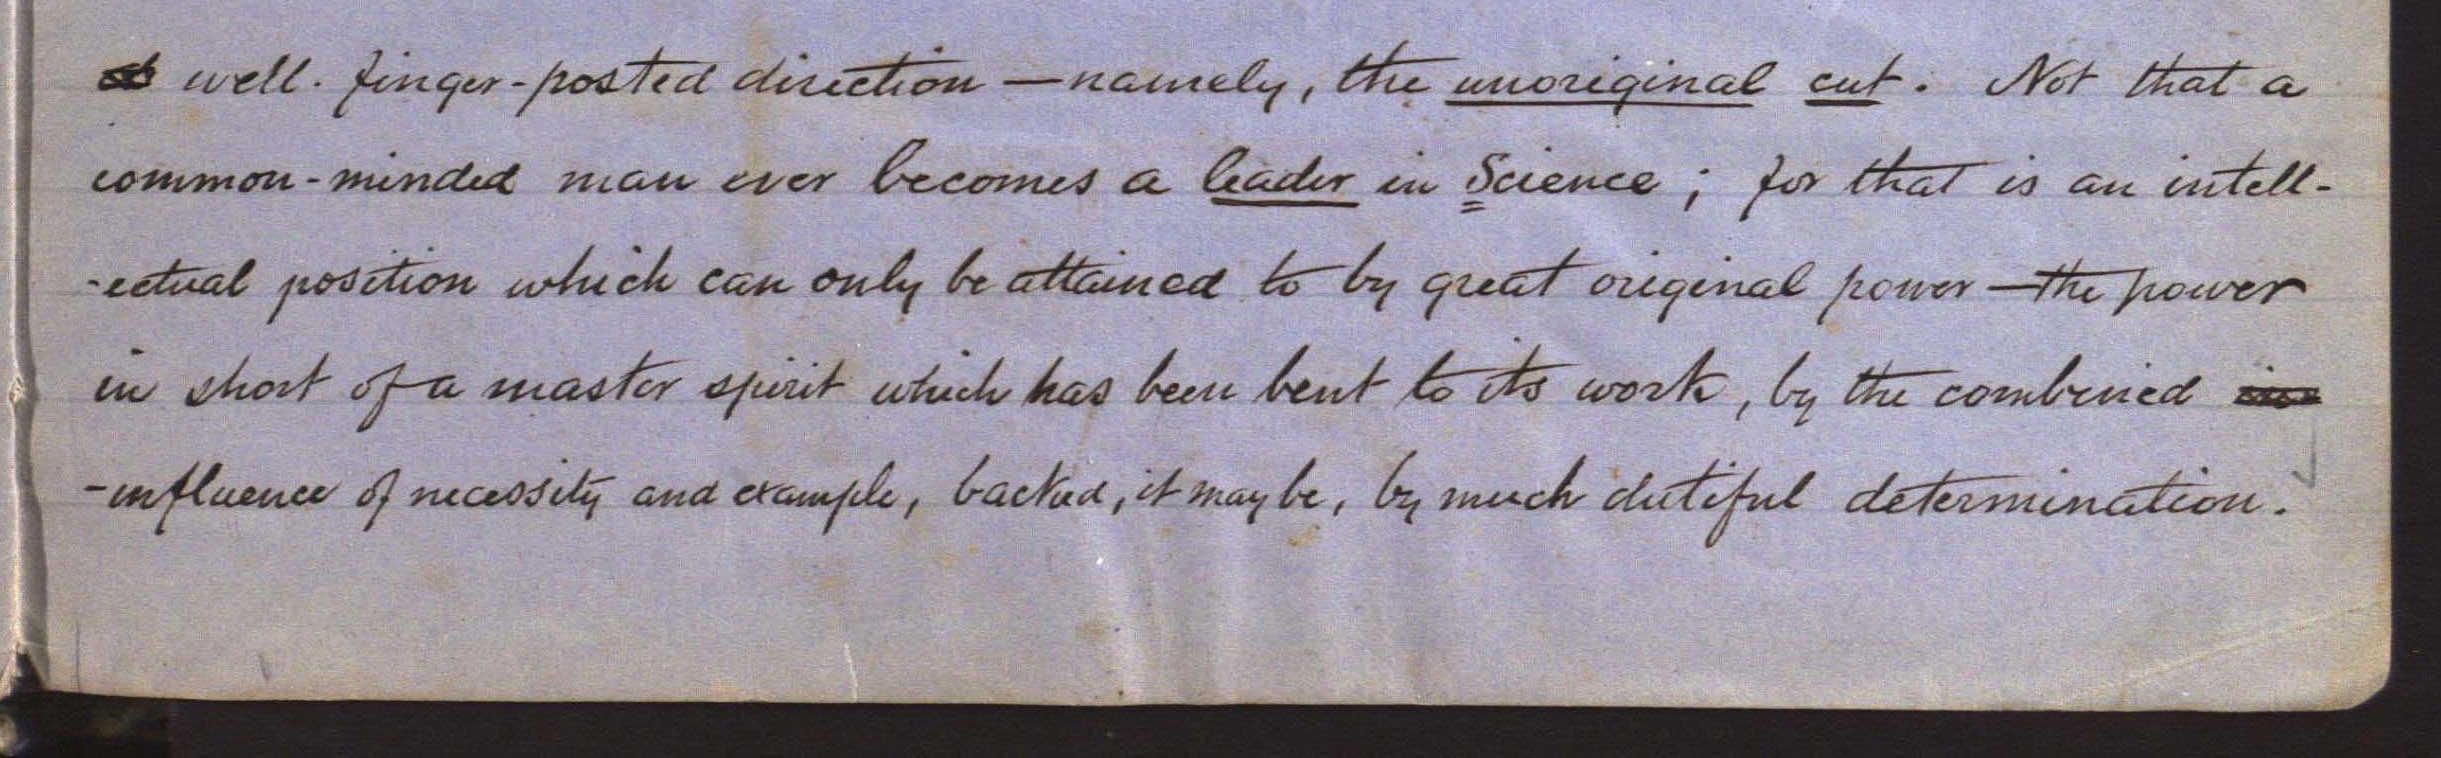 well-finger-posted direction — namely, the unoriginal cut. Not that a
common-minded man ever becomes a leader in Science; for that is an intell-
-ectual position which can only be attained to by great original power — the power
in short of a master spirit which has been bent to its work, by the combined
-influence of necessity and example, backed, it may be, by much dutiful determination.